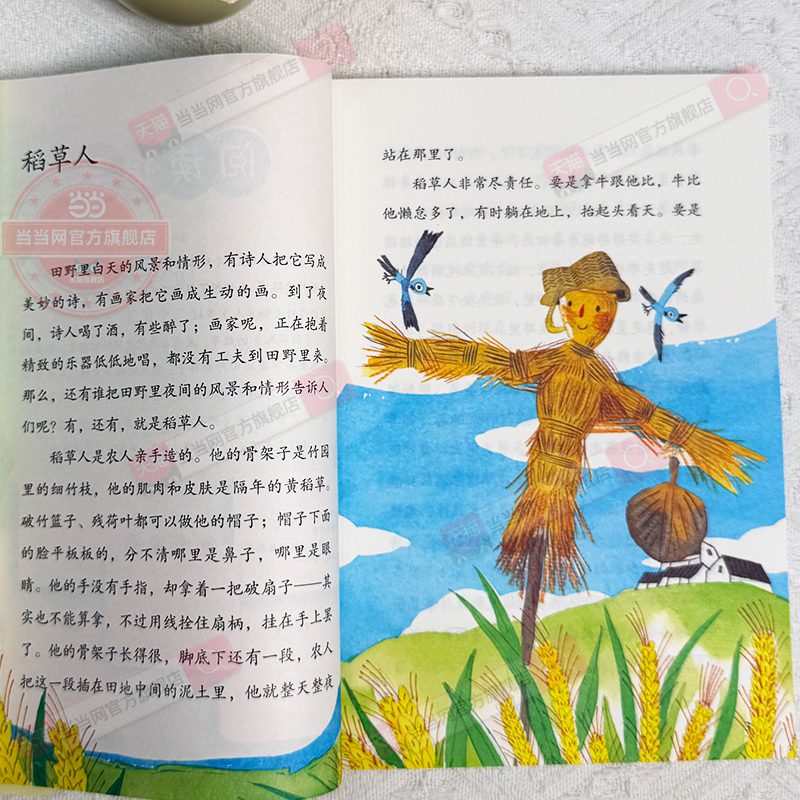 稻草人
田野里白天的风景和情形，有诗人把它写成
美妙的诗，有画家把它画成生动的画。到了夜
间，诗人喝了酒，有些醉了；画家呢，正在抱着
精致的乐器低低地唱，都没有工夫到田野里来。
那么，还有谁把田野里夜间的风景和情形告诉人
们呢？有，还有，就是稻草人。
稻草人是农人亲手造的。他的骨架子是竹园
里的细竹枝，他的肌肉和皮肤是隔年的黄稻草。
破竹篮子、残荷叶都可以做他的帽子；帽子下面
的脸平板板的，分不清哪里是鼻子，哪里是眼
睛。他的手没有手指，却拿着一把破扇子——其
实也不能算拿，不过用线拴住扇柄，挂在手上罢
了。他的骨架子长得很，脚底下还有一段，农人
把这一段插在田地中间的泥土里，他就整天整夜
站在那里了。
稻草人非常尽责任。要是拿牛跟他比，牛比
他懒怠多了，有时躺在地上，抬起头看天。要是
天猫 当当网官方旗舰店
天猫 当当网官方旗舰店
天猫 当当网官方旗舰店
当当
当当网官方旗舰店
当当网官方旗舰店
当当网官方旗舰店
当当网官方旗舰店